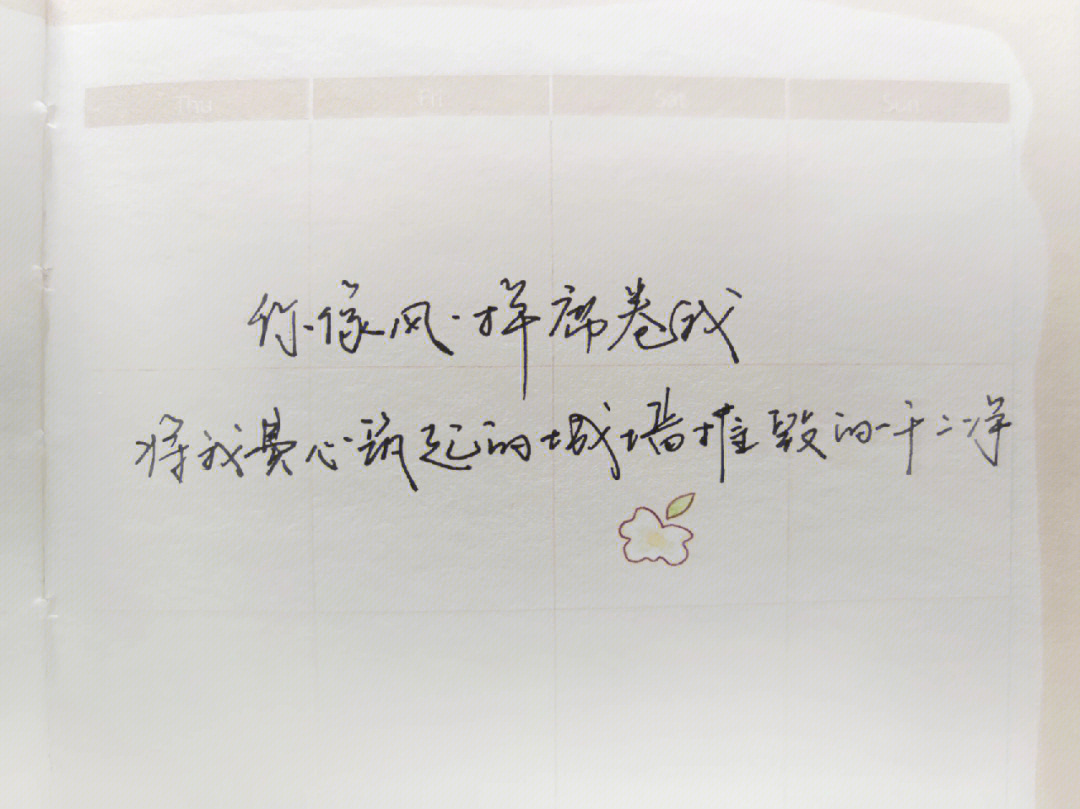 Thu Fri Sat Sun
你像风一样席卷我
将我费心筑起的城墙摧毁的一干二净